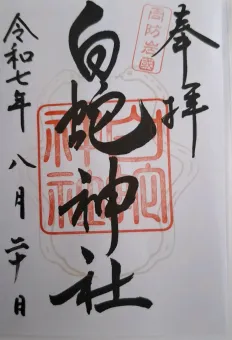 奉拝
周防岩國
白蛇神社
白蛇神社
令和七年 八月 二十日